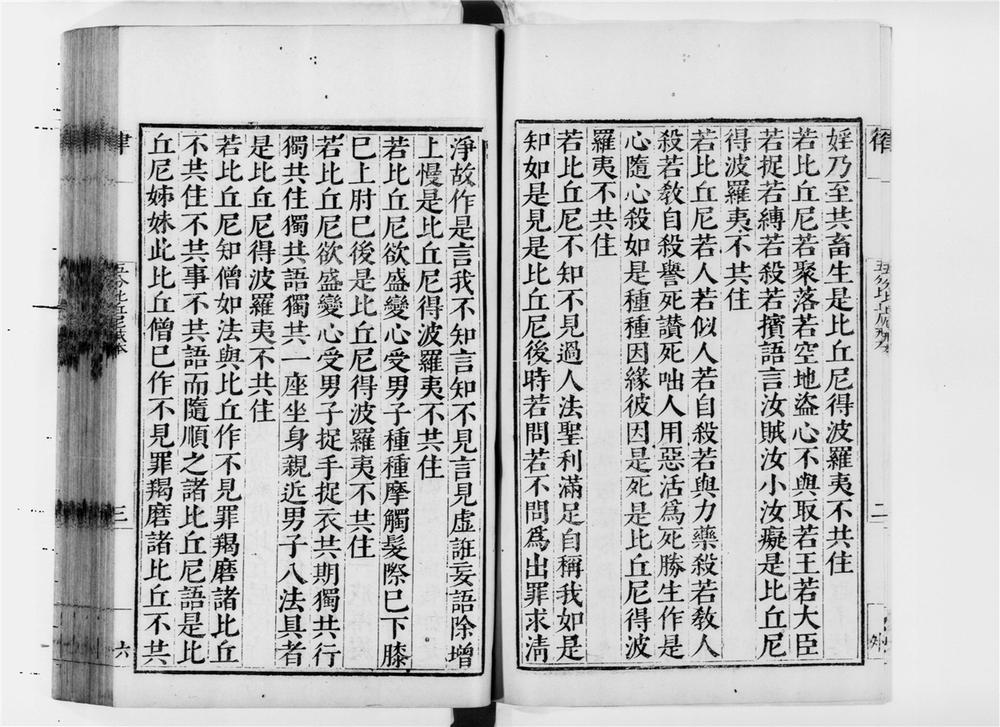 婬乃至共畜生是比丘尼得波羅夷不共住
若比丘尼若聚落若空地盜心不與取若王若大臣
若捉若縛若殺若擯語言汝賊汝小汝癡是比丘尼
得波羅夷不共住
若比丘尼若人若似人若自殺若與刀藥殺若敎人
殺若敎自殺譽死讃死咄人用惡活爲死勝生作是
心隨心殺如是種種因緣彼因是死是比丘尼得波
羅夷不共住
若比丘尼不知不見過人法聖利滿足自稱我如是
知如是見是比丘尼後時若問若不問爲出罪求淸
淨故作是言我不知言知不見言見虛誑妄語除增
上慢是比丘尼得波羅夷不共住
若比丘尼欲盛變心受男子種種摩觸髮際已下膝
已上肘已後是比丘尼得波羅夷不共住
若比丘尼欲盛變心受男子捉手捉衣共期獨共行
獨共住獨共語獨共一座坐身親近男子八法具者
是比丘尼得波羅夷不共住
若比丘尼知僧如法與比丘作不見罪羯磨諸比丘
不共住不共事不共語而隨順之諸比丘尼語是比
丘尼姊妹此比丘僧已作不見罪羯磨諸比丘不共
律
五分比丘尼戒本
三
六